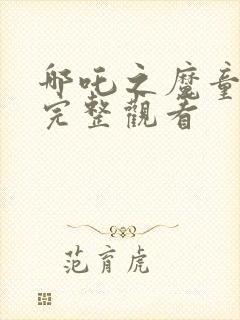 哪吒之魔童
完整觀者
范育虎